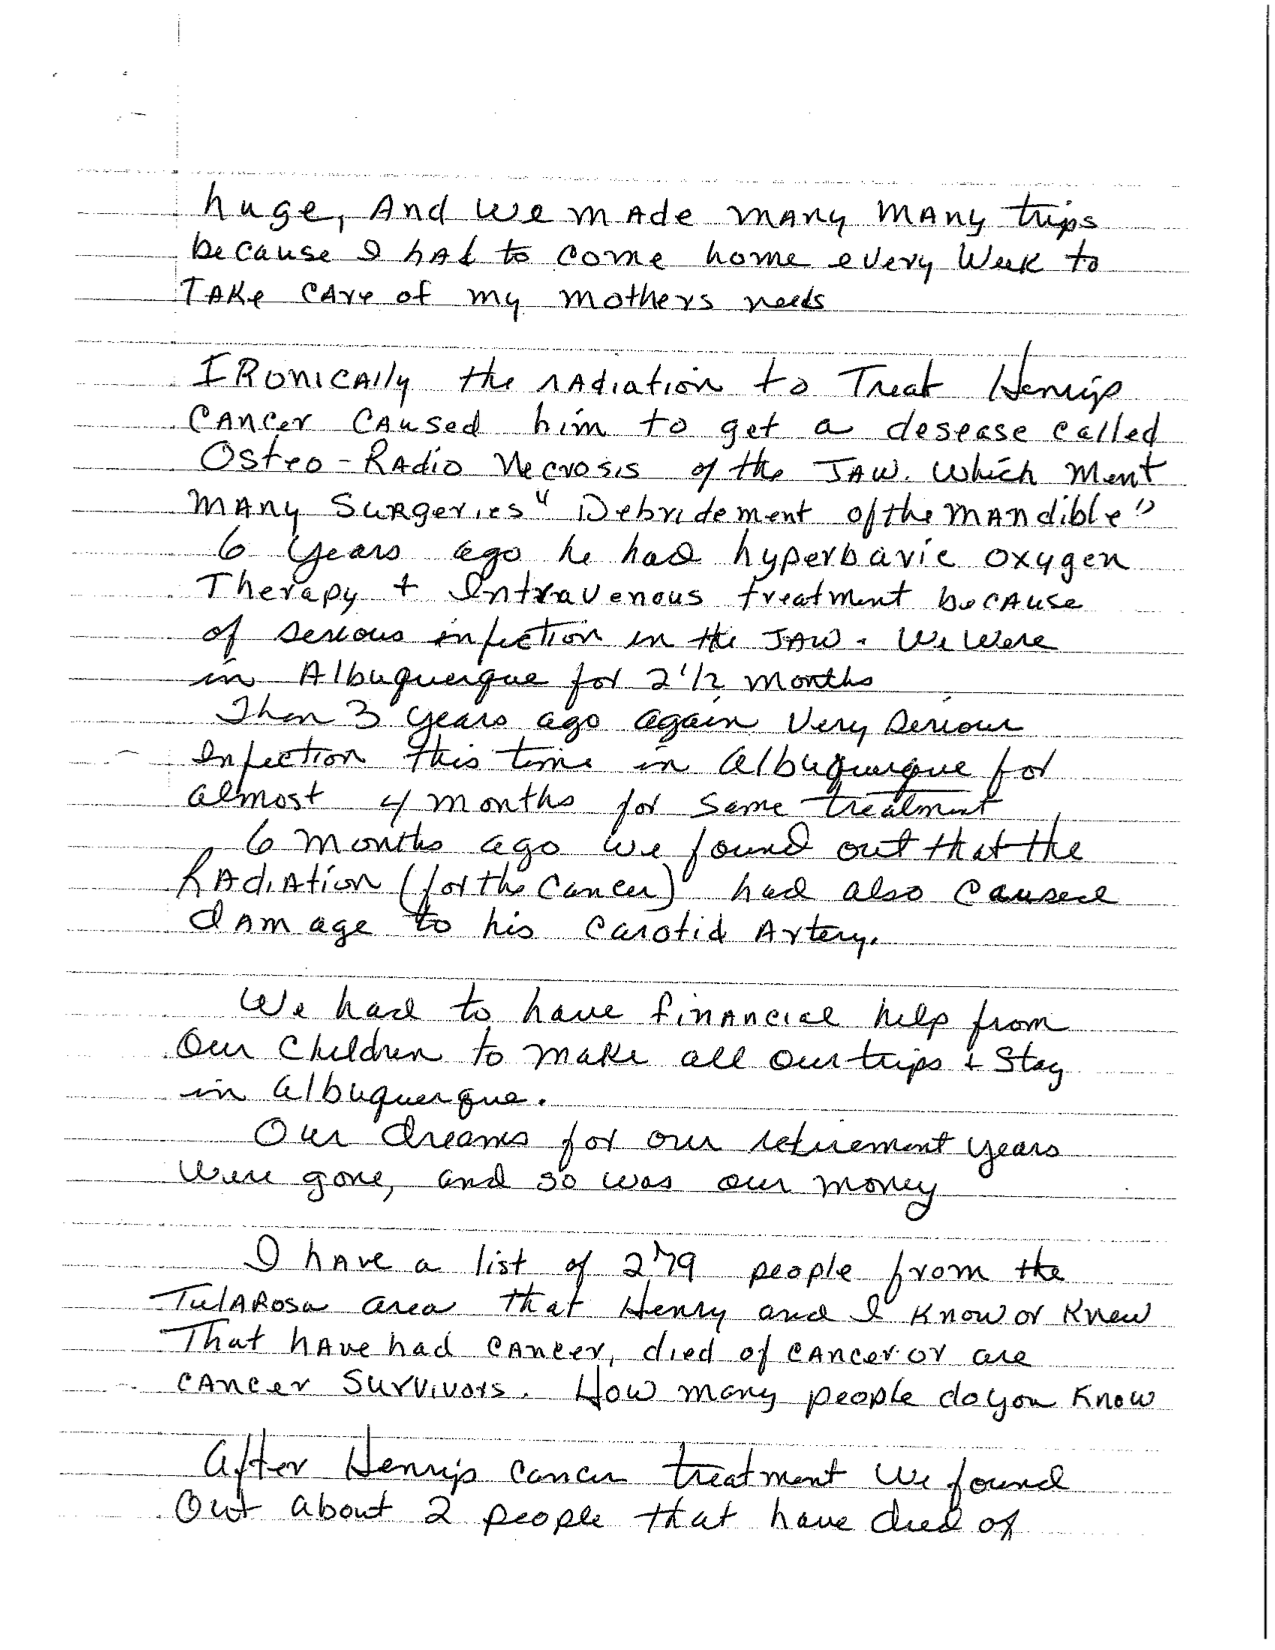 huge, And we mAde mANy mANy trips
because I hAd to come home every Week to
TAKe CAre of my mothers needs
IRonicAlly the rAdiation to Treat Henrys
CANcer CAused him to get a desease called
Osteo-RAdio Necrosis of the JAW. Which ment
mANy Surgeries "Debridement of the mANdible"
6 years ago he had hyperbaric oxygen
Therapy + Intravenous treatment becAuse
of serious infection in the JAW. We were
in Albuquerque for 2 1/2 months
Then 3 years ago again Very serious
Infection this time in Albuquerque for
almost 4 months for same treatment
6 months ago we found out that the
RAdiAtion (for the Cancer) had also caused
dAmage to his Carotid Artery.
We had to have finANcial help from
Our Children to make all our trips + Stay
in Albuquerque.
Our dreams for our retirement years
Were gone, and so was our money
I hAve a list of 279 people from the
TulARosa area that Henry and I Know or Knew
That hAve had CANcer, died of cANcer or are
CANcer Survivors. How many people do you Know
After Henrys cancer treatment We found
Out about 2 people that have died of